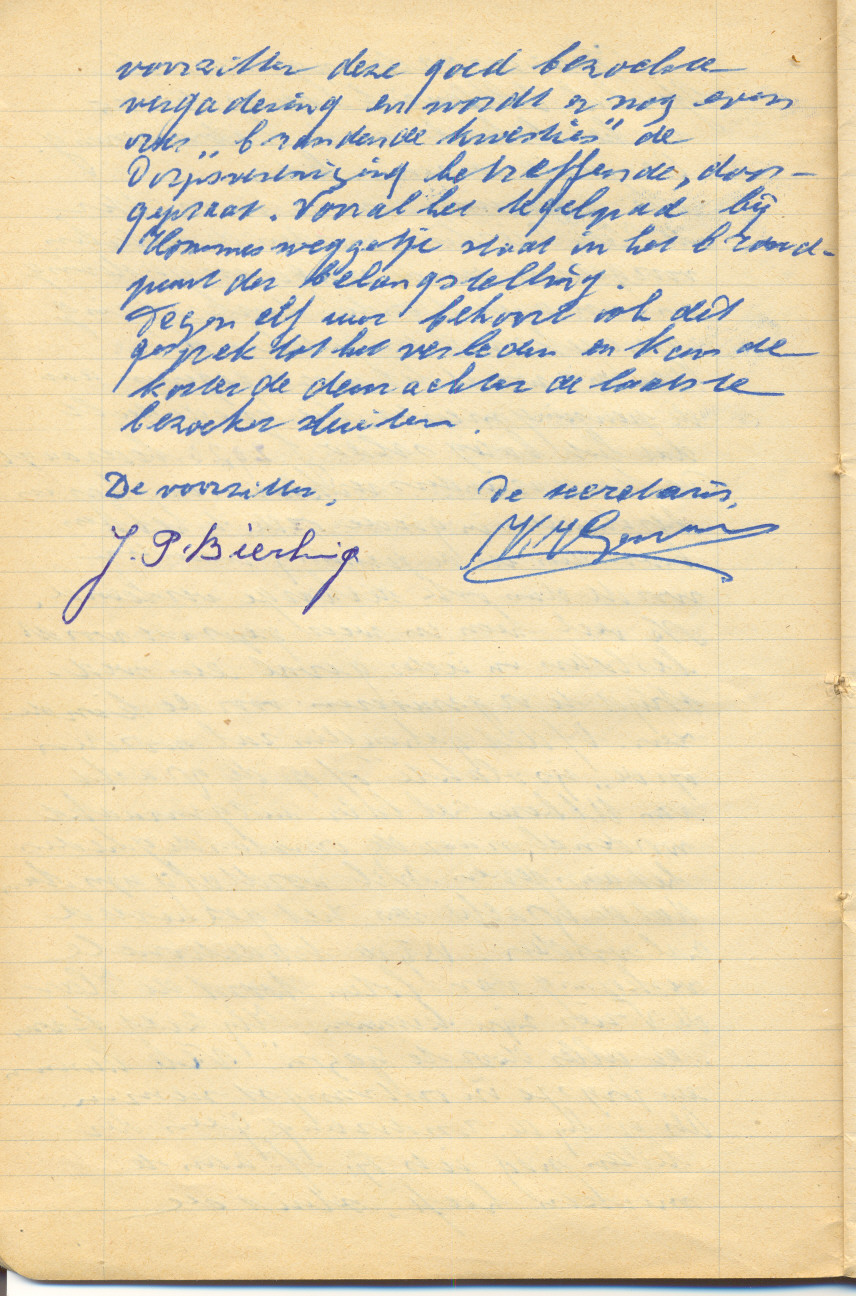 voorzitter deze goed bezochte
vergadering en wordt er nog even
over „brandende kwesties” de
Dorpsvereniging betreffende, door-
gepraat. Vooral het tegelpad bij
Hommesweggetje staat in het brand-
punt der belangstelling.
Tegen elf uur behoort ook dit
gesprek tot het verleden en kan de
koster de deur achter de laatste
bezoeker sluiten
De voorzitter, De secretaris,
J. P. Bierling